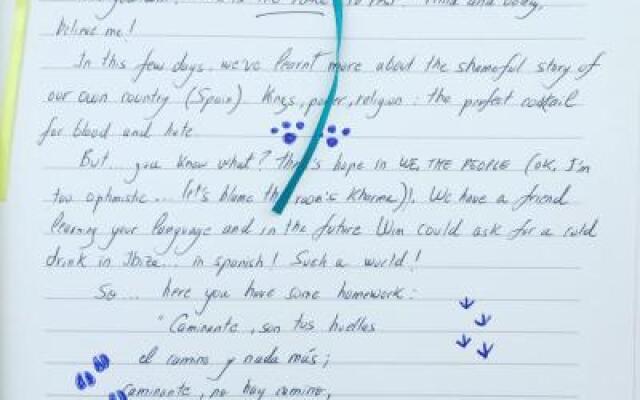 to rest. Mind and body,
believe me!
In this few days, we've learnt more about the shameful story of
our own country (Spain). Kings, power, religion: the perfect cocktail
for blood and hate.
But... you know what? There's hope in WE, THE PEOPLE (OK, I'm
too optimistic... let's blame the room's Kharma)!. We have a friend
learning your language and in the future Wim could ask for a cold
drink in Ibiza... in spanish! Such a world!
So... here you have some homework:
"Caminante, son tus huellas
el camino y nada más;
caminante, no hay camino,